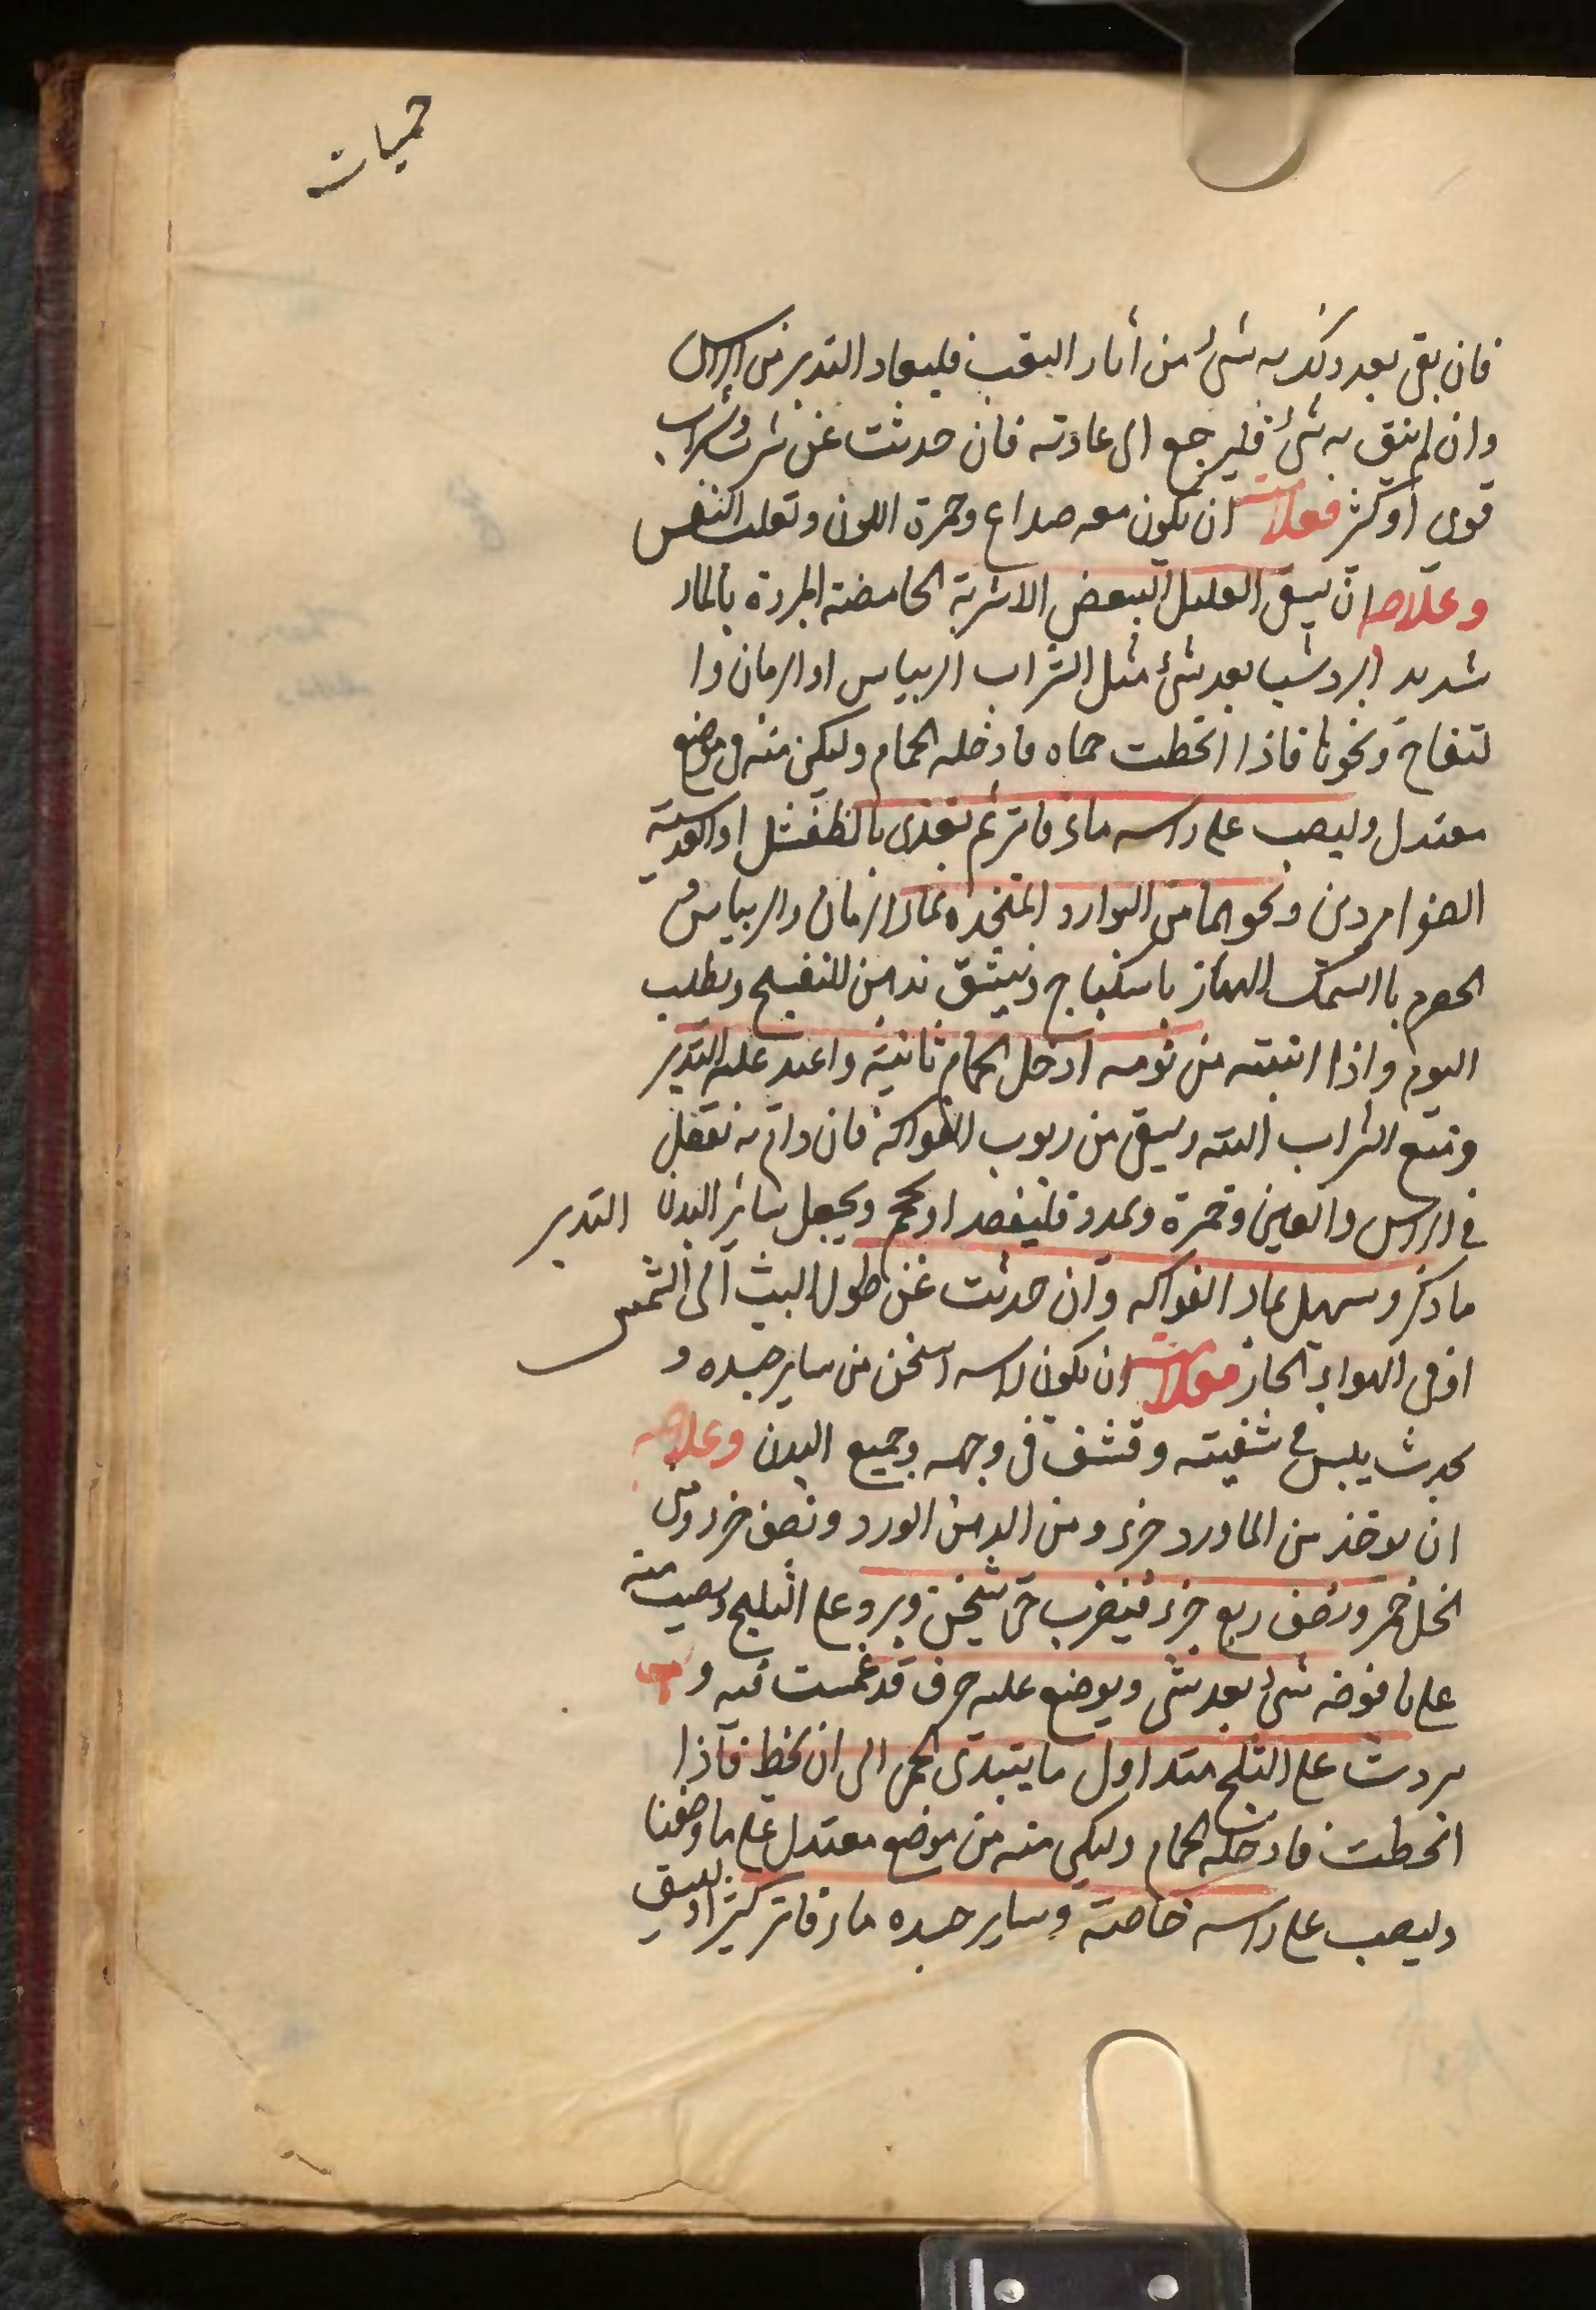 حميات
فان بقى بعد ذلك به شئ من أثار التعب فليعاد التدبير من الراس
وان لم يبق به شئ فليرجع الى عادته فان حدثت عن شرب شراب
قوى أو كثر فعلامته ان يكون معه صداع وحمرة اللون وتقلب النفس
وعلاجه ان يسقى العليل البعض الاشربة الحامضة المبردة بالماء
شديد البرد شيا بعد شئ مثل الشراب الريباس او الرمان وا
لتفاح ونحوها فاذا انحطت حماه فادخله الحمام وليكن منه فى موضع
معتدل وليصب على راسه ماء فاتر ثم يغذى بالطفشل او العدسية
الصفر امردين ونحوهما من البوارد المتخذه بماء الرمان والريباس و
الحصرم بالسمك الهماز باسكباج وينشق بدهن البنفسج ويطلب
النوم واذا انتبه من نومه أدخل الحمام ثانية واعيد عليه التدبير
ويمنع الشراب البته ويسقى من ربوب الفواكه فان دام به ثقل
فى الراس والعين وحمرة وتمدد فليفصد او يحجم ويجعل سائر البدن التدبير
ما ذكر ويسهل بماء الفواكه وان حدثت عن طول اللبث الى الشمس
او فى الهواء الحار فعلامته ان يكون راسه اسخن من ساير جسده و
يحدث يبس فى شفيته وقشف فى وجهه وجميع البدن وعلاجه
ان يوخذ من الماورد جزء ومن الدهن الورد ونصف جزء ومن
الخل خمر ونصف ربع جزء فيضرب حتى يثخن ويبرد على الثلج ويصب منه
على يافوخه شئ بعد شئ ويوضع عليه خرق قد غمست فيه و
بردت على الثلج منذ اول ما يبتدى الحمى الى ان يحط فاذا
انحطت فادخله الحمام وليكن منه فى موضع معتدل على ما وصفنا
وليصب على راسه خاصة وساير جسده ماء فاتر كثير او يسقى